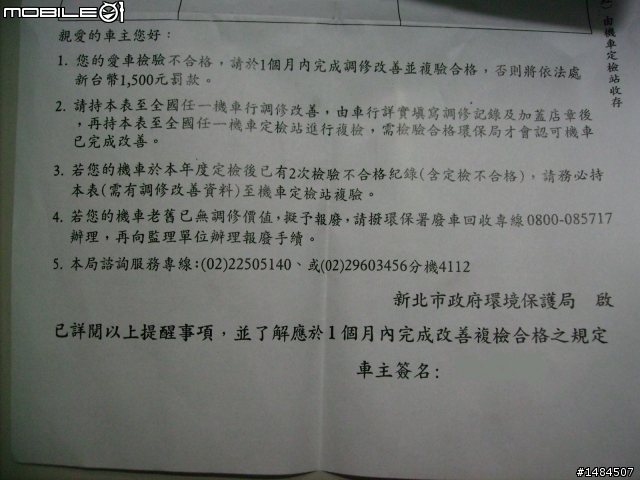 MOBILE01
親愛的車主您好：
1. 您的愛車檢驗不合格，請於1個月內完成調修改善並複驗合格，否則將依法處
新台幣1,500元罰款。
2. 請持本表至全國任一機車行調修改善，由車行詳實填寫調修記錄及加蓋店章後
，再持本表至全國任一機車定檢站進行複檢，需檢驗合格環保局才會認可機車
已完成改善。
3. 若您的機車於本年度定檢後已有2次檢驗不合格紀錄(含定檢不合格)，請務必持
本表(需有調修改善資料)至機車定檢站複驗。
4. 若您的機車老舊已無調修價值，擬予報廢，請撥環保署廢車回收專線0800-085717
辦理，再向監理單位辦理報廢手續。
5. 本局諮詢服務專線：(02)22505140、或(02)29603456分機4112
新北市政府環境保護局 啟
已詳閱以上提醒事項，並了解應於1個月內完成改善複檢合格之規定
車主簽名:
由機車定檢站收存
#1484507